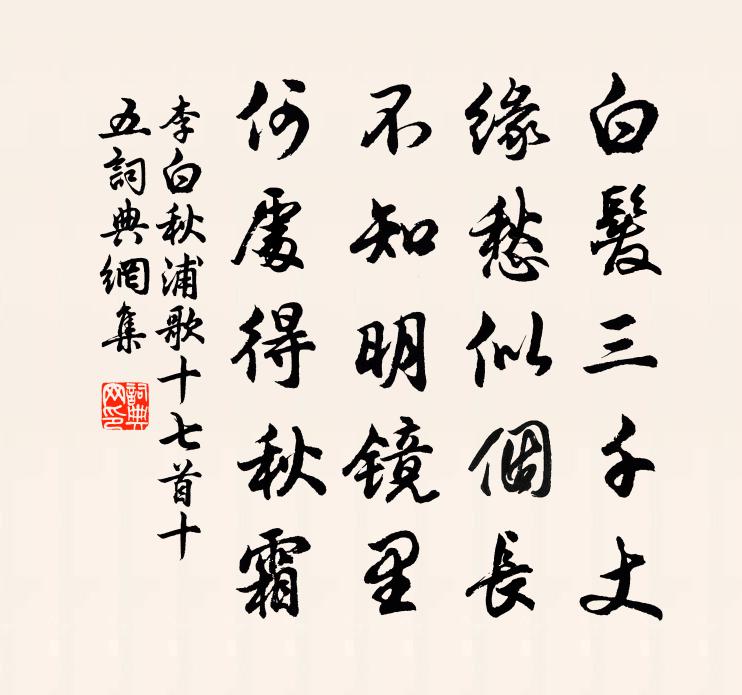 白髮三千丈
緣愁似個長
不知明镜里
何處得秋霜
李白秋浦歌十七首十
五詞典網集
詞典網印